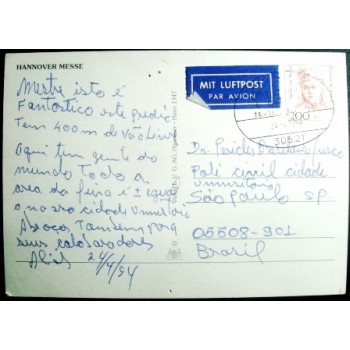 HANNOVER MESSE
Mestre isto é
Fantastico este predio
Tem 400m de vão livre
Aqui tem gente do
mundo todo a
area da feira é ± igual
a nossa cidade
Abraços Tambem para
seus colaboradores
24/4/94
MIT LUFTPOST
PAR AVION
200
30521
Dr.
Poli civil cidade
Universitaria
São Paulo SP
05508-901
Brasil